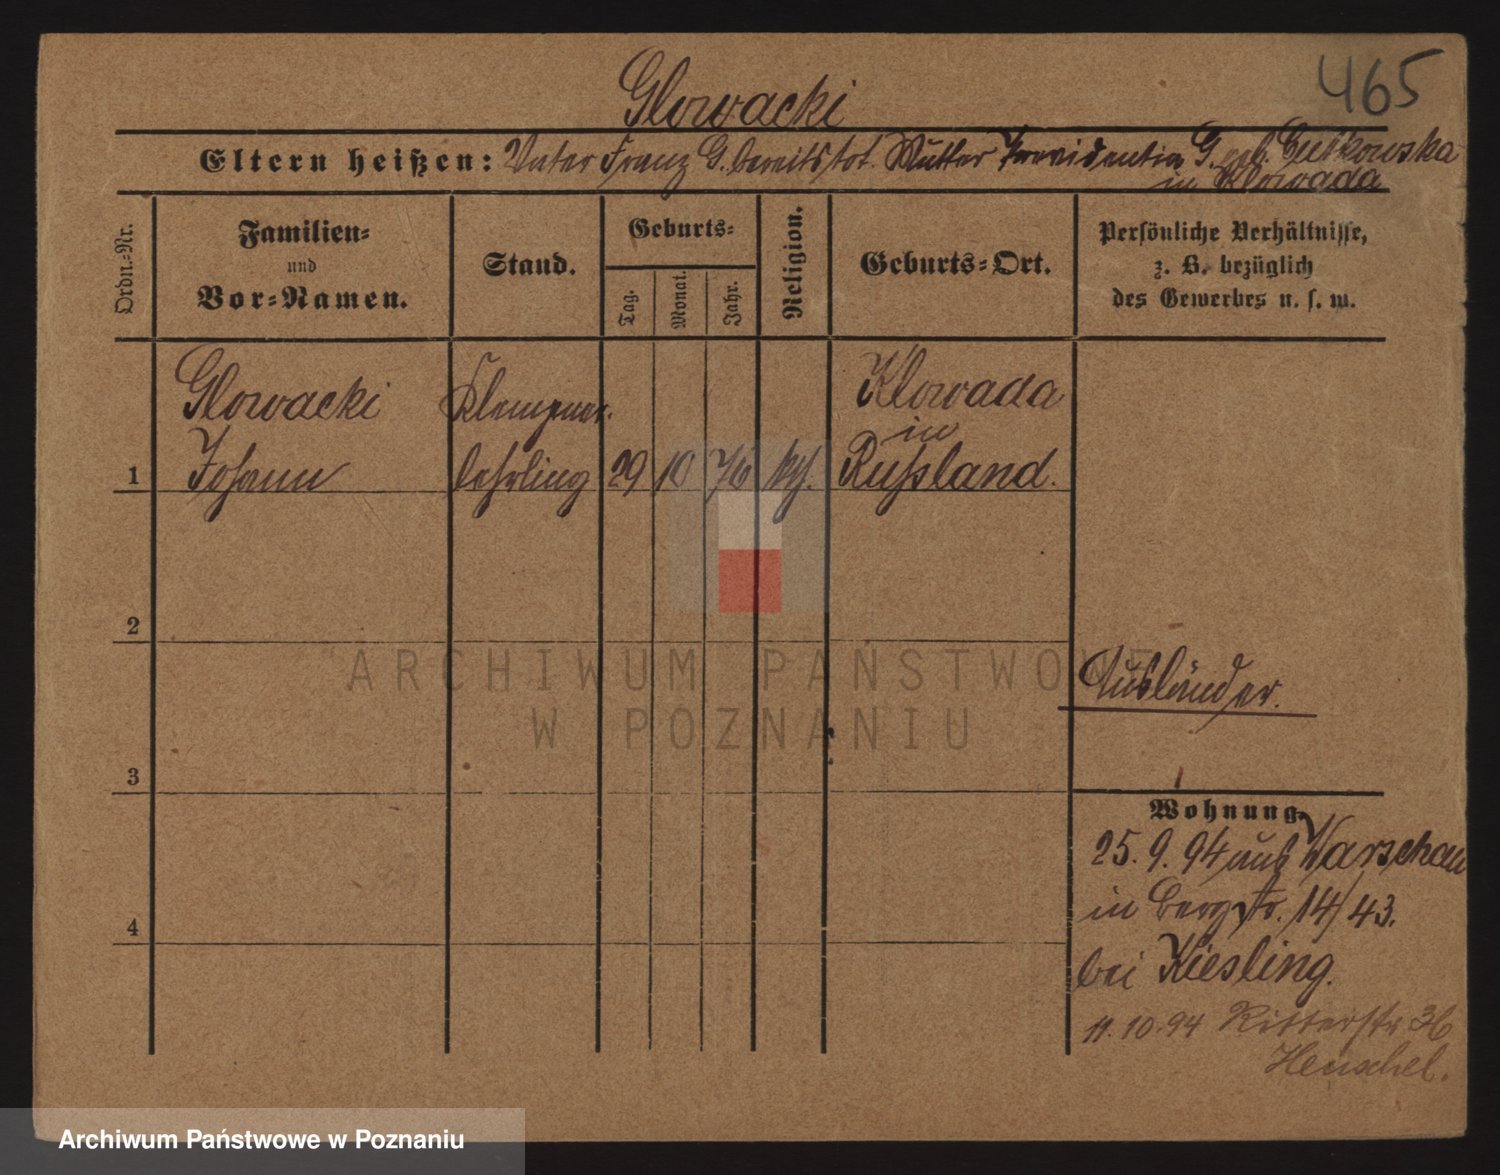 465
Glowacki
Eltern heißen: Vater Franz G. bereits tot. Mutter Providentia G. geb. Gutkowska
in Klowada
Ordn.-Nr.
Familien-
und
Vor-Namen.
Stand.
Geburts-
Tag.
Monat.
Jahr.
Religion.
Geburts-Ort.
Persönliche Verhältnisse,
z. B. bezüglich
des Gewerbes u. s. w.
Glowacki Klempner- Klowada
in
1 Johann lehrling 29 10 76 kth. Russland.
2
Ausländer.
3
Wohnung
25. 9. 94 aus Warschau
in Bergstr. 14/43.
4
bei Kiesling.
11.10.94 Ritterstr 36
Henschel.
ARCHIWUM PAŃSTWOWE
W POZNANIU
Archiwum Państwowe w Poznaniu